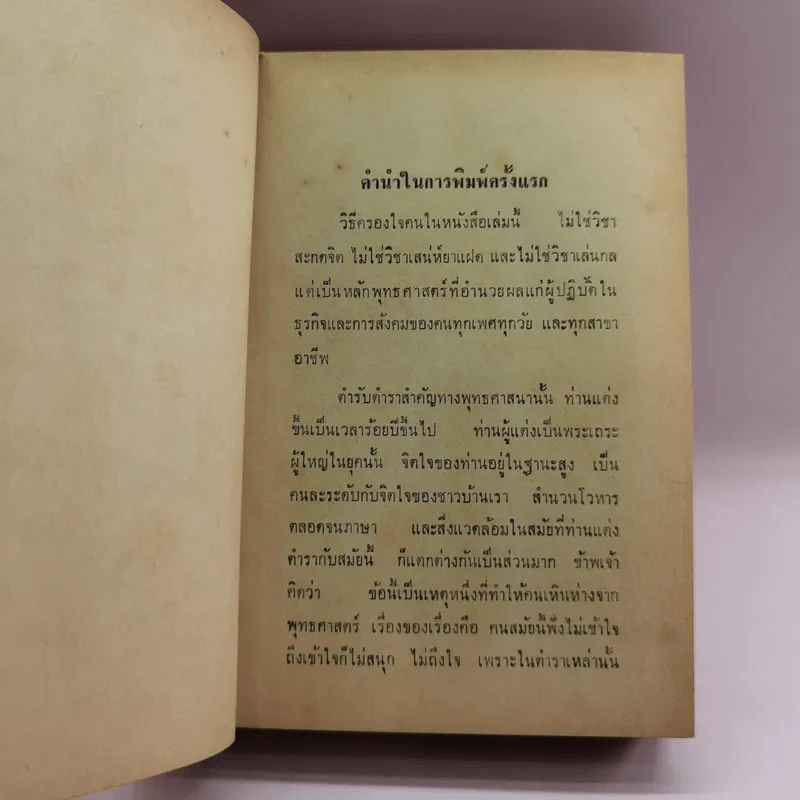 คำนำในการพิมพ์ครั้งแรก
วิธีครองใจคนในหนังสือเล่มนี้ ไม่ใช่วิชา
สะกดจิต ไม่ใช่วิชาเสน่ห์ยาแฝด และไม่ใช่วิชาเล่นกล
แต่เป็นหลักพุทธศาสตร์ที่อำนวยผลแก่ผู้ปฏิบัติใน
ธุรกิจและการสังคมของคนทุกเพศทุกวัย และทุกสาขา
อาชีพ
ตำรับตำราสำคัญทางพุทธศาสนานั้น ท่านแต่ง
ขึ้นเป็นเวลาร้อยปีขึ้นไป ท่านผู้แต่งเป็นพระเถระ
ผู้ใหญ่ในยุคนั้น จิตใจของท่านอยู่ในฐานะสูง เป็น
คนละระดับกับจิตใจของชาวบ้านเรา สำนวนโวหาร
ตลอดจนภาษา และสิ่งแวดล้อมในสมัยที่ท่านแต่ง
ตำรากับสมัยนี้ ก็แตกต่างกันเป็นส่วนมาก ข้าพเจ้า
คิดว่า ข้อนี้เป็นเหตุหนึ่งที่ทำให้คนเหินห่างจาก
พุทธศาสตร์ เรื่องของเรื่องคือ คนสมัยนี้ฟังไม่เข้าใจ
ถึงเข้าใจก็ไม่สนุก ไม่ถึงใจ เพราะในตำราเหล่านั้น